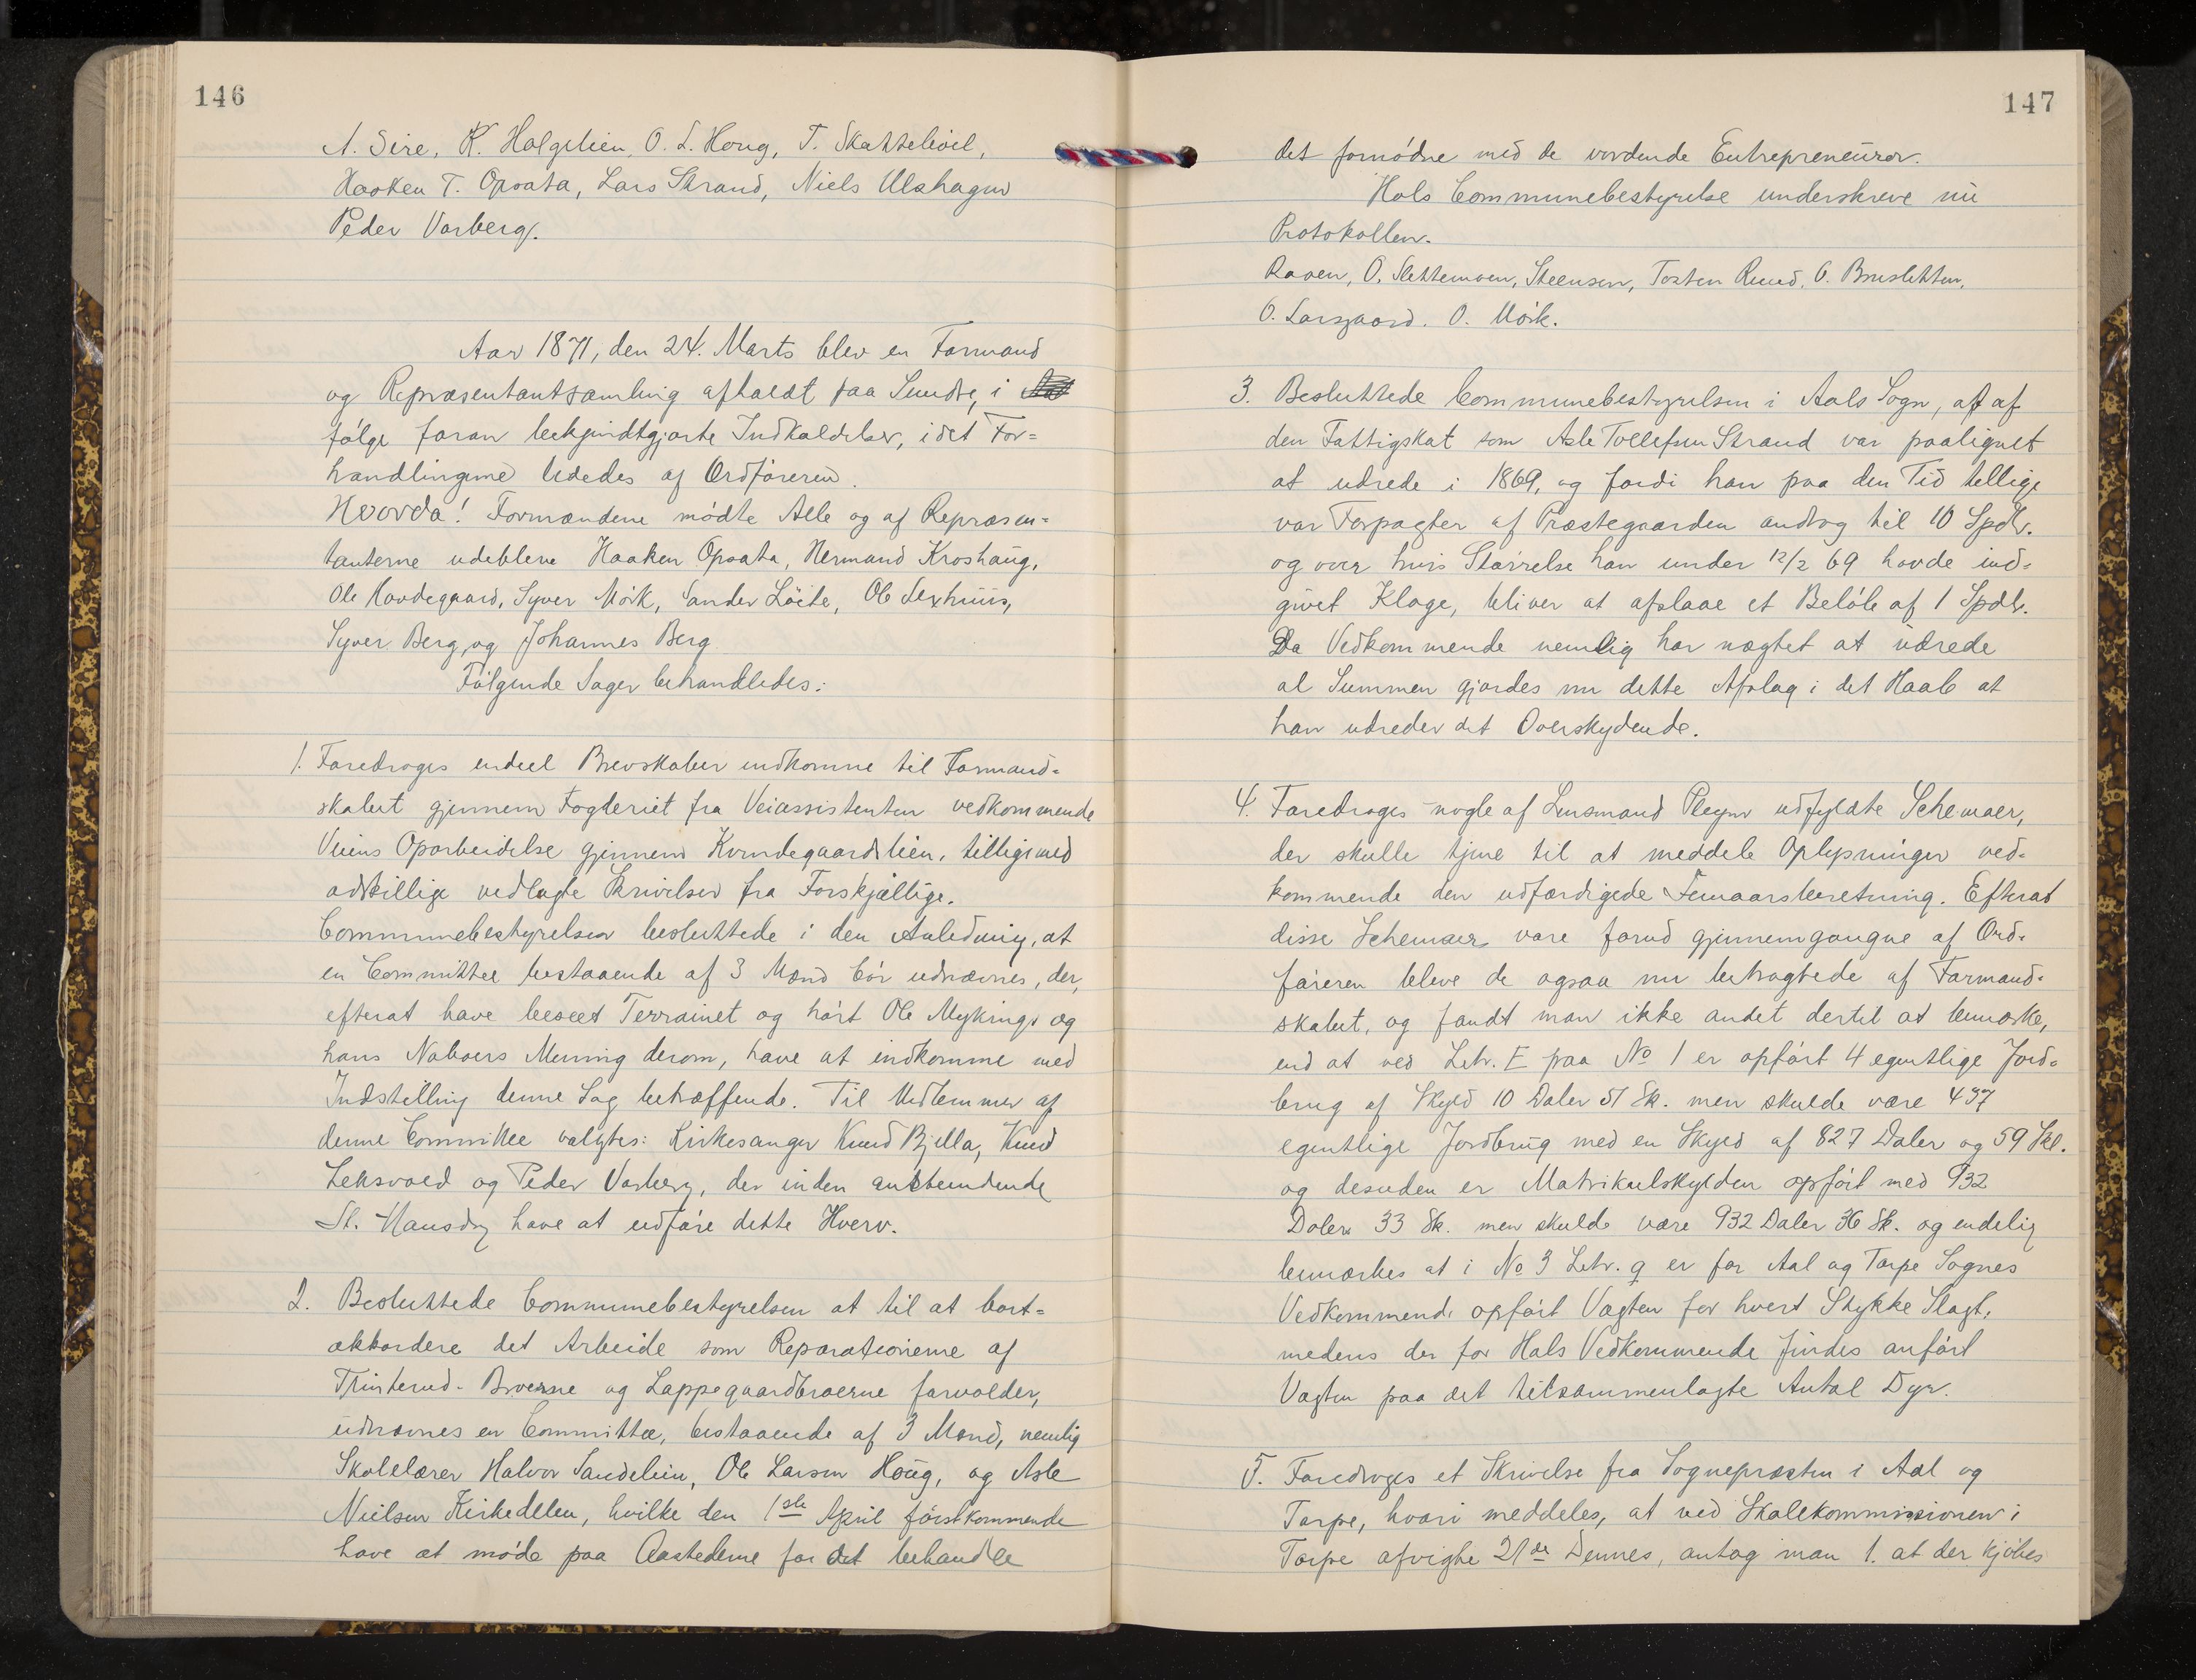 146
A. Sire, K. Holgelien, O. L. Houg, T. Skattebøel,
Haaken T. Opsata, Lars Strand, Niels Ulshagen
Peder Varberg.
Aar 1871, den 24. Marts blev en Formand
og Repræsentantsamling afholdt paa Sundre, i
følge foran bekjendtgjorte Indkaldelser, idet For=
handlingerne lededes af Ordføreren.
Hvorda! Formændene mødte Alle og af Repræsen=
tanterne udebleve Haaken Opsata, Hermand Kroshaug,
Ole Hovdegaard, Syver Mørk, Sander Løite, Ole Sexhuus,
Syver Berg, og Johannes Berg
Følgende Sager behandledes:
1. Foredroges endeel Brevskaber indkomne til Formand=
skabet gjennem Fogderiet fra Veiassistenten vedkommende
Veiens Oparbeidelse gjennem Kvindegaardslien, tilligemed
adskillige vedlagte Skrivelser fra Forskjællige.
Communebestyrelsen besluttede i den Anledning, at
en Committee bestaaende af 3 Mænd bør udnævnes, der,
efterat have beseet Terrainet og hørt Ole Myking, og
hans Naboers Mening derom, have at indkomme med
Indstilling denne Sag betræffende. Til Medlemmer af
denne Committee valgtes: Kirkesanger Knud Bjella, Knud
Leksvold og Peder Varberg, der inden anstundende
St. Hansdag have at udføre dette Hverv.
2. Besluttede Communebestyrelsen at til at bort=
akkordere det Arbeide som Reparationerne af
Trinterud-Broerne og Lappegaardbroerne forvolder,
udnævnes en Committee, bestaaende af 3 Mænd, nemlig
Skolelærer Halvor Sandelien, Ole Larsen Houg, og Asle
Nielsen Kirkedelen, hvilke den 1ste April førstkommende
have at møde paa Aastederne for det behandle
147
det fornødne med de vordende Entrepreneurer.
Hols Communebestyrelse underskreve nu
Protokollen.
Raaen, O. Slettemoen, Steensen, Tosten Ruud, O. Bruslettten,
O. Larsgaard. O. Mørk.
3. Besluttede Communebestyrelsen i Aals Sogn, at af
den Fattigskat som Asle Tollefsen Strand var paalignet
at udrede i 1869, og fordi han paa den Tid tillige
var Forpagter af Præstegaarden androg til 10 Spdlr.
og over hvis Størrelse han under 12/2 69 havde ind=
givet Klage, bliver at afslaae et Beløb af 1 Spdlr.
Da Vedkommende nemlig har nægtet at udrede
al Summen gjordes nu dette Afslag i det Haab at
han udreder det Overskydende.
4. Foredroges nogle af Lensmand Pleym udfyldte Schemaer,
der skulle tjene til at meddele Oplysninger ved=
kommende den udfærdigede Femaarsberetning. Efterat
disse Schemaer vare forud gjennemgangne af Ord=
føreren bleve de ogsaa nu betragtede af Formand=
skabet, og fandt man ikke andet dertil at bemærke,
end at ved Litr. E paa No 1 er opført 4 egentlige Jord=
brug af Skyld 10 Daler 51 Sk. men skulde være 437
egentlige Jordbrug med en Skyld af 827 Daler og 59 Skl.
og desuden er Matrikulskylden opført med 932
Daler 33 Sk. men skulde være 932 Daler 36 Sk. og endelig
bemærkes at i No 3 Litr. g er for Aal og Torpe Sognes
Vedkommende opført Vægten for hvert Stykke Slagt,
medens der for Hols Vedkommende findes anført
Vægten paa det tilsammenlagte Antal Dyr.
5. Foredroges et Skrivelse fra Sognepræsten i Aal og
Torpe, hvori meddeles, at ved Skolekommissionen i
Torpe afvigte 21de Dennes, antog man 1. at der kjøbes